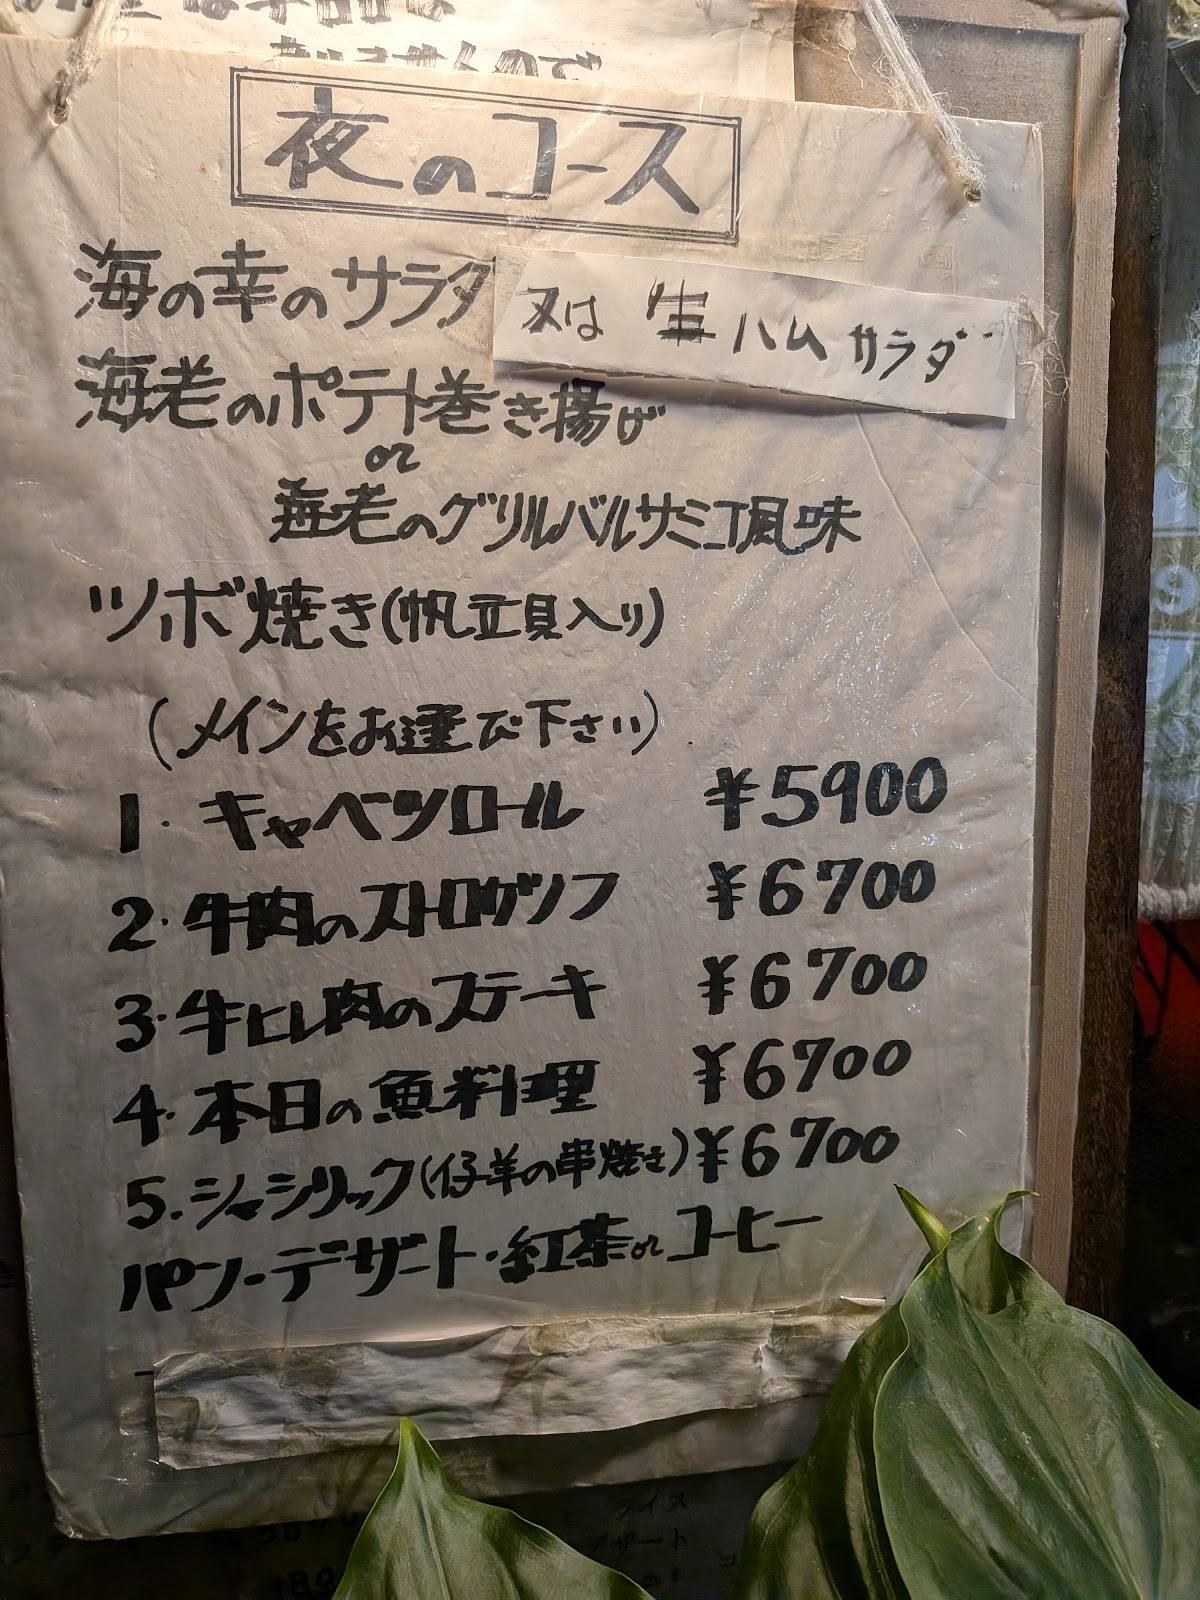 夜のコース
海の幸のサラダ 又は 生ハムサラダ
海老のポテト巻き揚げ
or
海老のグリルバルサミコ風味
ツボ焼き(帆立貝入り)
(メインをお選び下さい)
1. キャベツロール ¥5900
2. 牛肉のストロガノフ ¥6700
3. 牛ヒレ肉のステーキ ¥6700
4. 本日の魚料理 ¥6700
5. シャシリック(仔羊の串焼き) ¥6700
パン・デザート・紅茶orコーヒー
ライス
デザート